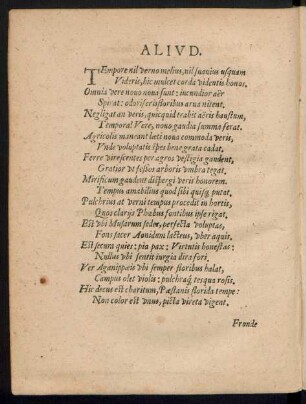 ALIVD.
TEmpore nil verno melius, nil suauius usquam
Videris, hic mulcet corda videntis honos,
Omnia vere nouo noua sunt: incundior aër
Spirat: odoriferis floribus arua nitent,
Negligat an veris, quicquid trahit aëris haustum,
Tempora? Vere, nouo gaudia summa ferat.
Agricolis maneant læti noua commoda veris,
Vnde voluptatis spes bene grata cadat,
Ferre virescentes per agros vestigia gaudent,
Gratior ut fessos arboris umbra tegat,
Mirificum gaudent dispergi veris honorem.
Tempus amabilius quod sibi quisq; putat,
Pulchrius at verni tempus procedit in hortis,
Quos clarus Phœbus fontibus ipse rigat,
Est vbi Musarum sedes, perfecta voluptas,
Fons sacer Aonidum lacteus, vber aquis.
Est secura quies: pia pax: Virtutis honestas:
Nullus vbi sentit iurgia dira fori.
Ver Aganippæis vbi semper floribus halat,
Campus olet violis: pulchraq; tesqua rosis.
Hic decus est charitum, Pæstanis florida tempe:
Non color est vnus, picta vireta vigent.
Fronde